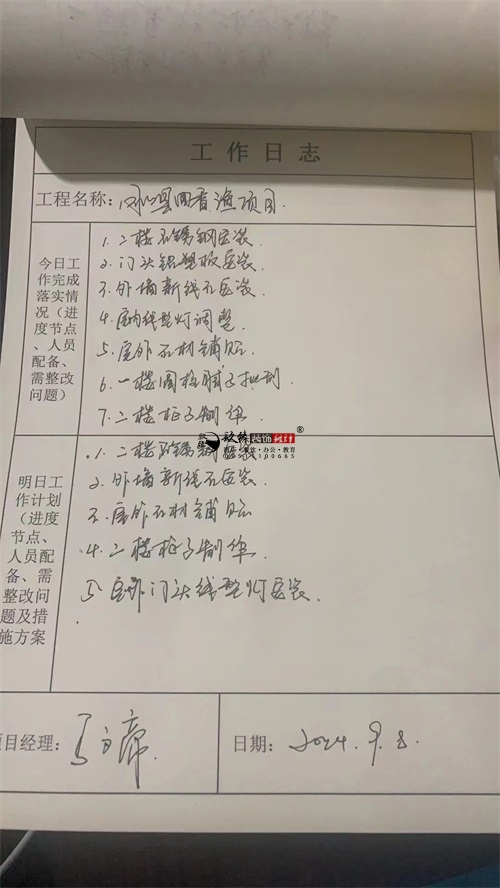 工作日志
工程名称：
今日工作完成落实情况（进度节点、人员配备、需整改问题）
1. 二楼不锈钢安装.
2. 门头铝塑板安装.
3. 外墙新线石安装.
4. 室内线型灯调整
5. 屋外石材铺贴.
6. 一楼圆柱腻子批刮.
7. 二楼柜子制作
装饰设计®
酒店·餐饮·办公·教育
明日工作计划（进度节点、人员配备、需整改问题及措施方案
1. 二楼不锈钢安装
2. 外墙新线石安装.
3. 屋外石材铺贴
4. 二楼柜子制作.
5. 室外门头线型灯安装.
项目经理：
日期： 2024.9.8.